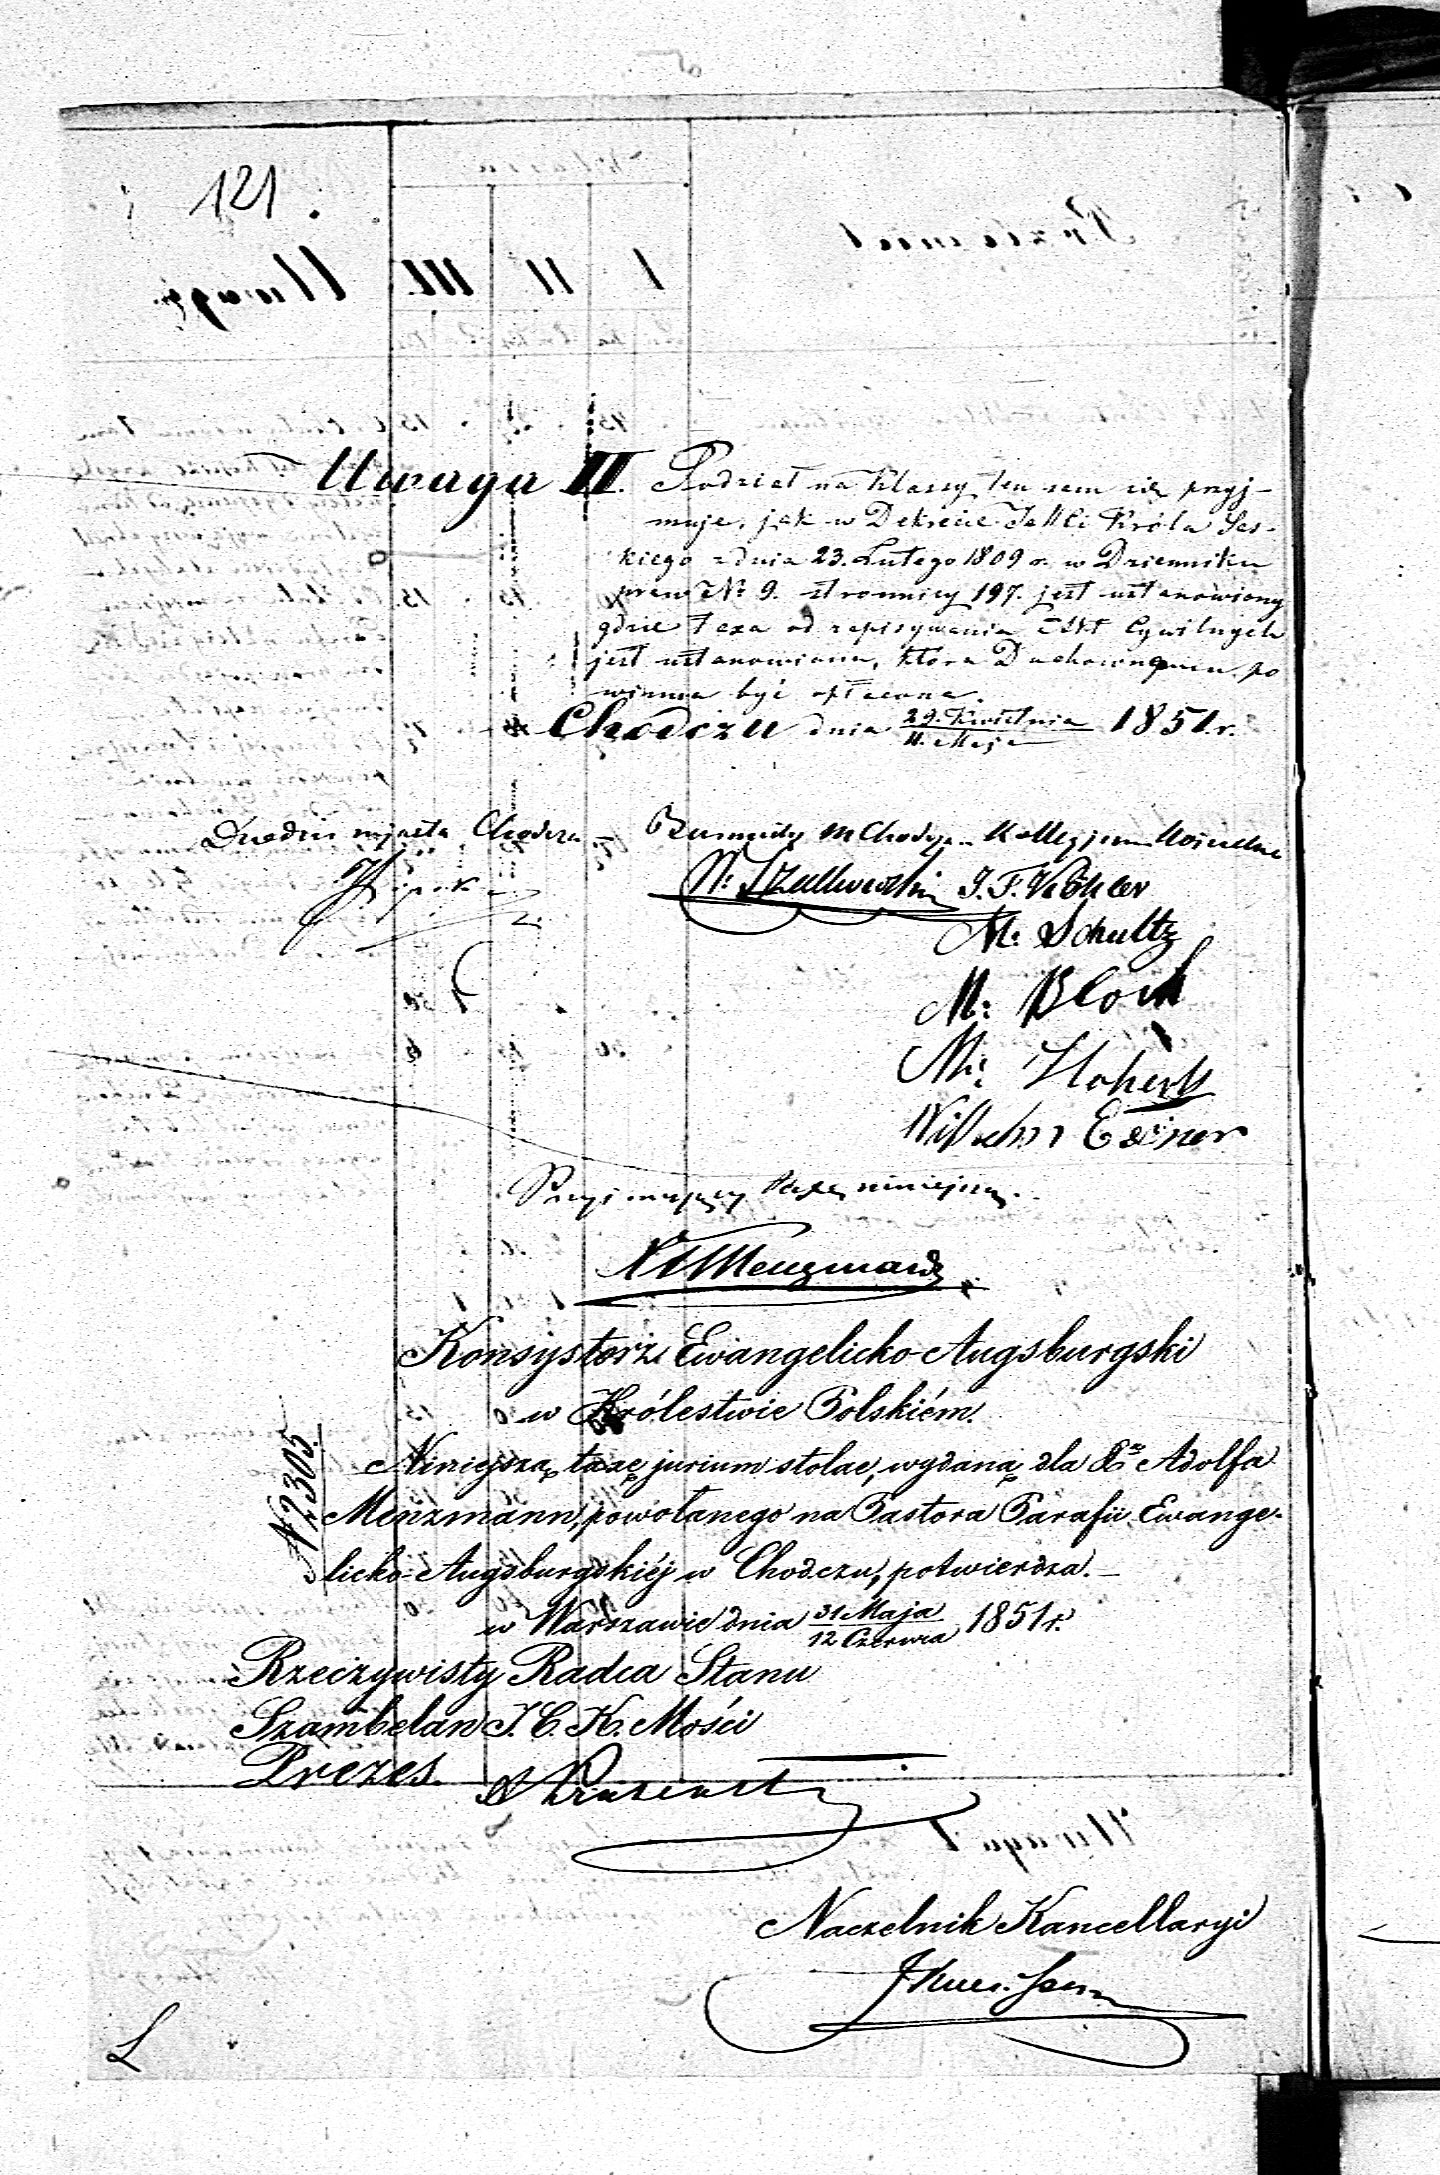 121.
Uwaga II. Podział na Klassy ten sam się przyj-
muje, jak w Dekrecie JKMci Króla Sas-
kiego z dnia 23. Lutego 1809 r. w Dzienniku
praw No 9. stronnicy 197. jest ustanowiony
gdzie taxa od zapisywania Akt Cywilnych
jest ustanowiona, która Duchownemu po
winna być opłacona.
w Chodczu dnia 29. Kwietnia / 11. Maja 1851 r.
Dziedzic miasta Chodcza Burmistrz M Chodcza Kollegjum Kościelne
J. F. Köhler
M. Schultz
M. Block
M.
Wilhelm
Przyjmujący taxę niniejszą.
Menzmann
Konsystorz Ewangelicko-Augsburgski
w Królestwie Polskiém.
N 2305.
Niniejszą taxę jurium stolae, wydaną dla Xa Adolfa
Menzmann, powołanego na Pastora Parafii Ewange-
licko-Augsburgskiéj w Chodczu, potwierdza.—
w Warszawie dnia 31 Maja / 12 Czerwca 1851 r.
Rzeczywisty Radca Stanu
Szambelan J. C. K. Mości
Prezes.
Naczelnik Kancellaryi